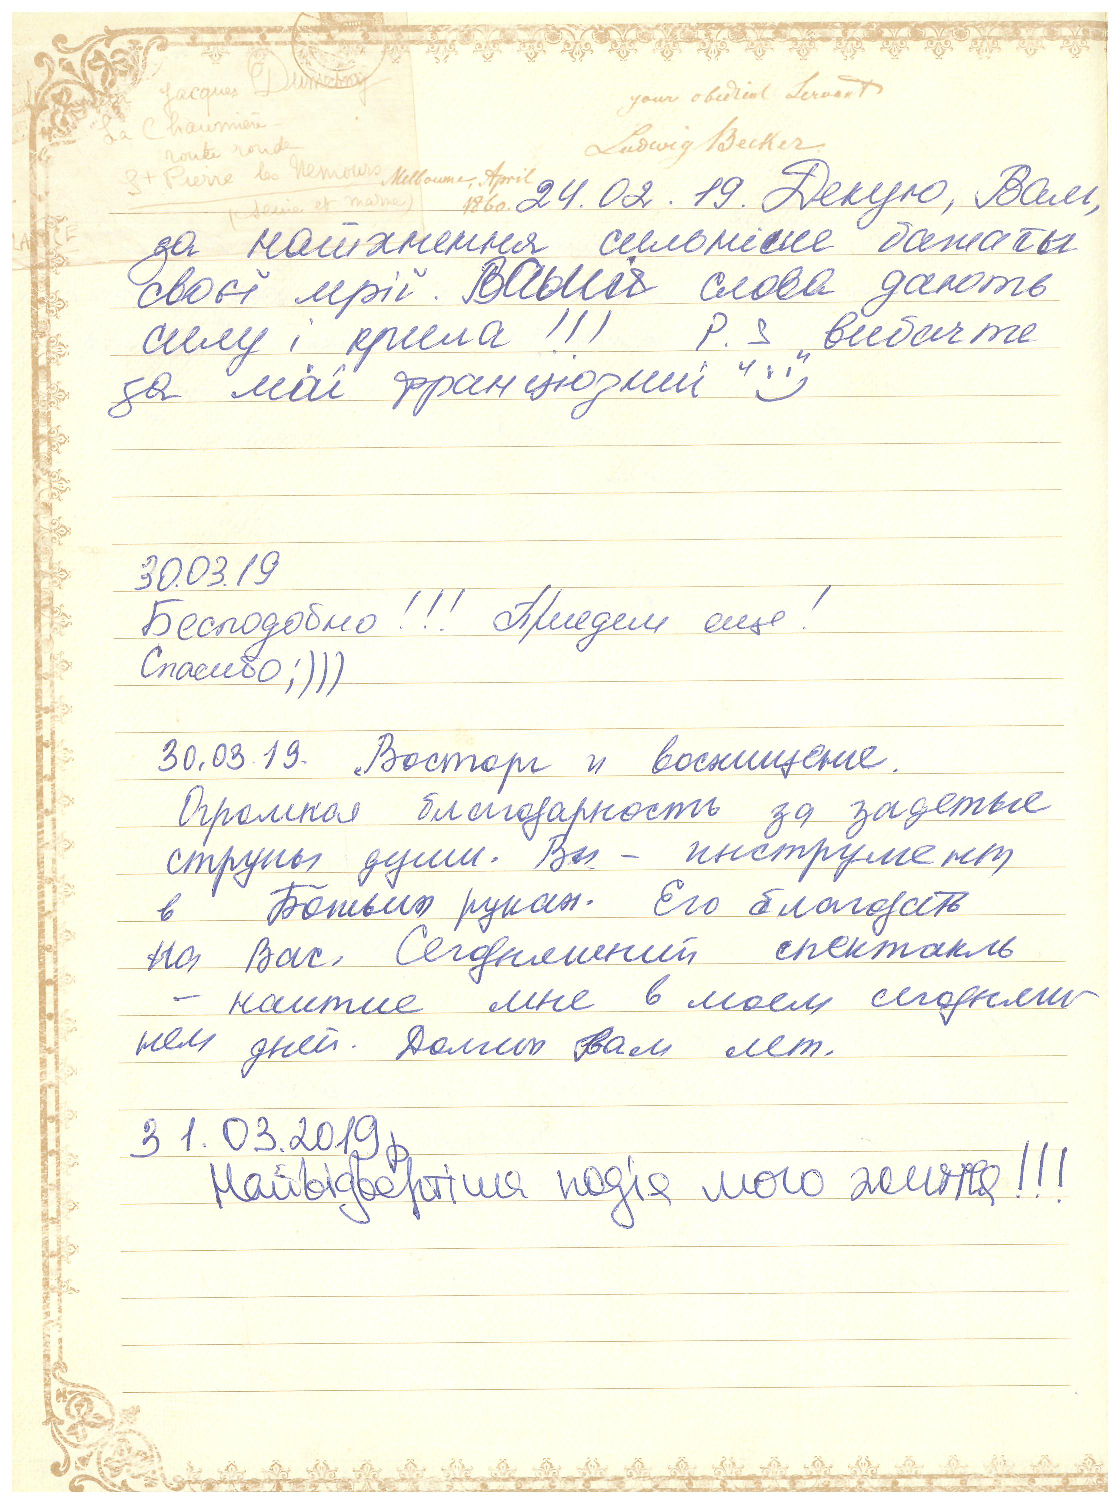 Jacques Dumarny
La Chaumière
route ronde
St Pierre les Nemours
(Seine et marne)
your obedient Servant
Ludwig Becker
Melbourne, April
1860.
24.02.19. Дякую, Вам,
за натхнення сильніше бажати
своєї мрії. Ваші слова дають
силу і крила !!! P.S вибачте
за мій французкий ":)"
30.03.19
Бесподобно!!! Приедем еще!
Спасибо;)))
30.03.19. Восторг и восхищение.
Огромная благодарность за задетые
струны души. Вы – инструмент
в Божьих руках. Его благодать
на Вас. Сегодняшний спектакль
– наитие мне в моем сегодняш-
нем дней. Долгих Вам лет.
31.03.2019р
Найвідвертіша подія мого життя!!!